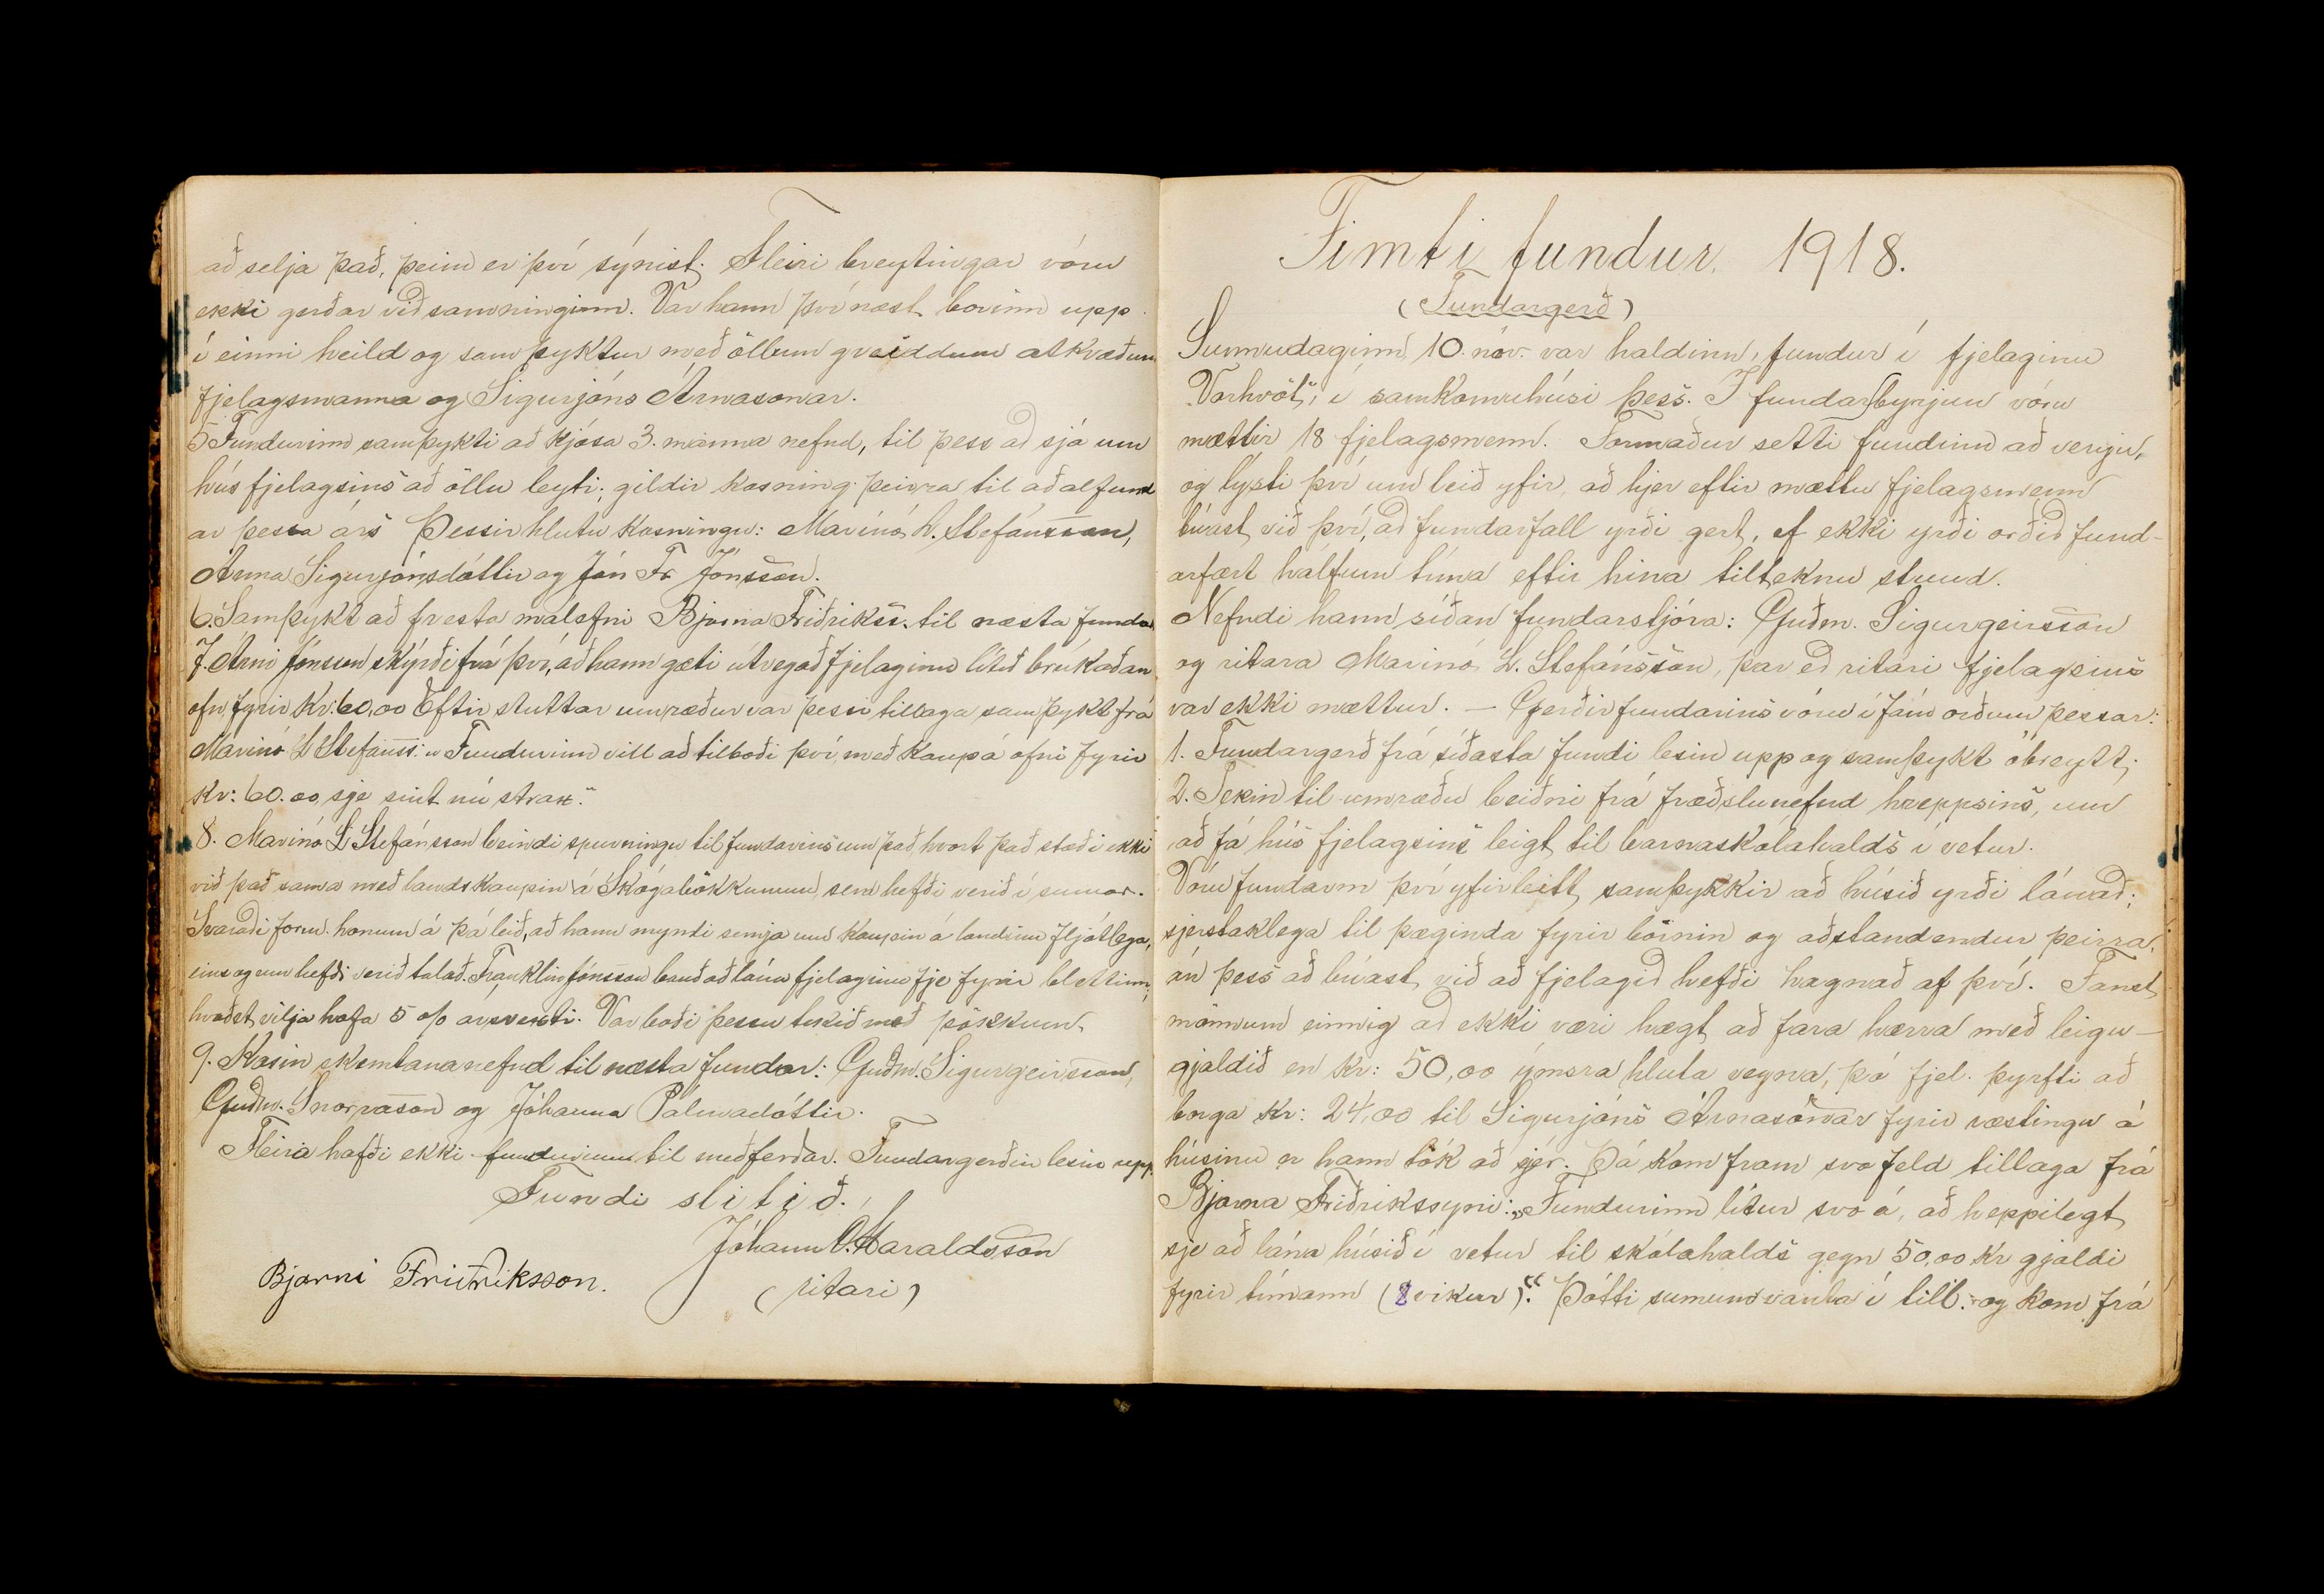 að selja það, þeim er því sýnist. Fleiri breytingar vóru
ekki gerðar við samninginn. Var hann því næst borinn upp
í einni heild og samþyktur með öllum greiddum atkvæðum
fjelagsmanna og Sigurjóns Árnasonar.
5 Fundurinn samþykti að kjósa 3. manna nefnd, til þess að sjá um
hús fjelagsins að öllu leyti; gildir kosning þeirra til aðalfund
ar þessa árs Þessir hlutu kosningu: Marinó L. Stefánsson,
Anna Sigurjónsdóttir og Jón Fr. Jónsson.
6. Samþykt að fresta málefni Bjarna Friðrikss. til næsta fundar
7. Árni Jónsson skýrði frá því, að hann gæti útvegað fjelaginu lítið brúkaðan
ofn fyrir Kr: 60,00 Eftir stuttar umræður var þessi tillaga samþykt frá
Marinó L Stefánss: „Fundurinn vill að tilboði því, með kaup á ofni fyrir
Kr: 60.00, sje sint nú strax."
8. Marinó L Stefánsson beindi spurningu til fundarins um það, hvort það stæði ekki
við það sama með landskaupin á Skógabökkunum, sem hefði verið í sumar.
Svaraði form. honum á þá leið, að hann myndi semja um kaupin á landinu fljótlega,
eins og um hefði verið talað. Franklin Jónsson bauð að lána fjelaginu fje fyrir blettinn,
kvaðst vilja hafa 5 o/o ársvexti. Var boði þessu tekið með þökkum.
9. Kosin skemtananefnd til næsta fundar: Guðm. Sigurgeirsson,
Guðm. Snorrason og Jóhanna Pálmadóttir.
Fleira hafði ekki fundurinn til meðferðar. Fundargerðin lesin upp.
Fundi slitið.
Jóhann Ó. Haraldsson
Bjarni Friðriksson. (ritari)
Fimti fundur. 1918.
(Fundargerð)
Sunnudaginn 10. nóv. var haldinn, fundur í fjelaginu
Vorhvöt", í samkomuhúsi þess. Í fundarbyrjun vóru
mættir 18 fjelagsmenn. Formaður setti fundinn að venju,
og lýsti því um leið yfir, að hjer eftir mættu fjelagsmenn
búast við því, að fundarfall yrði gert, ef ekki yrði orðið fund-
arfært hálfum tíma eftir hina tilteknu stund.
Nefndi hann síðan fundarstjóra: Guðm. Sigurgeirsson
og ritara Marinó L. Stefánsson, þar eð ritari fjelagsins
var ekki mættur. – Gerðir fundarins vóru í fám orðum þessar:
1. Fundargerð frá síðasta fundi lesin upp og samþykt óbreytt;
2. Tekin til umræðu beiðni frá fræðslunefnd hreppsins, um
að fá hús fjelagsins leigt til barnaskólahalds í vetur.
Vóru fundarm því yfirleitt samþykkir að húsið yrði lánað;
sjerstaklega til þæginda fyrir börnin og aðstandendur þeirra,
án þess að búast við að fjelagið hefði hagnað af því. Fanst
mönnum einnig að ekki væri hægt að fara hærra með leigu-
gjaldið en Kr: 50,00 ýmsra hluta vegna, þó fjel. þyrfti að
borga Kr: 24,00 til Sigurjóns Árnasonar fyrir ræstingu á
húsinu er hann tók að sjer. Þá kom fram svo feld tillaga frá
Bjarna Friðrikssyni: „Fundurinn lítur svo á, að heppilegt
sje að lána húsið í vetur til skólahalds gegn 50,00 Kr gjaldi
fyrir tímann (8 vikur)." Þótti sumum vanta í till. og kom frá